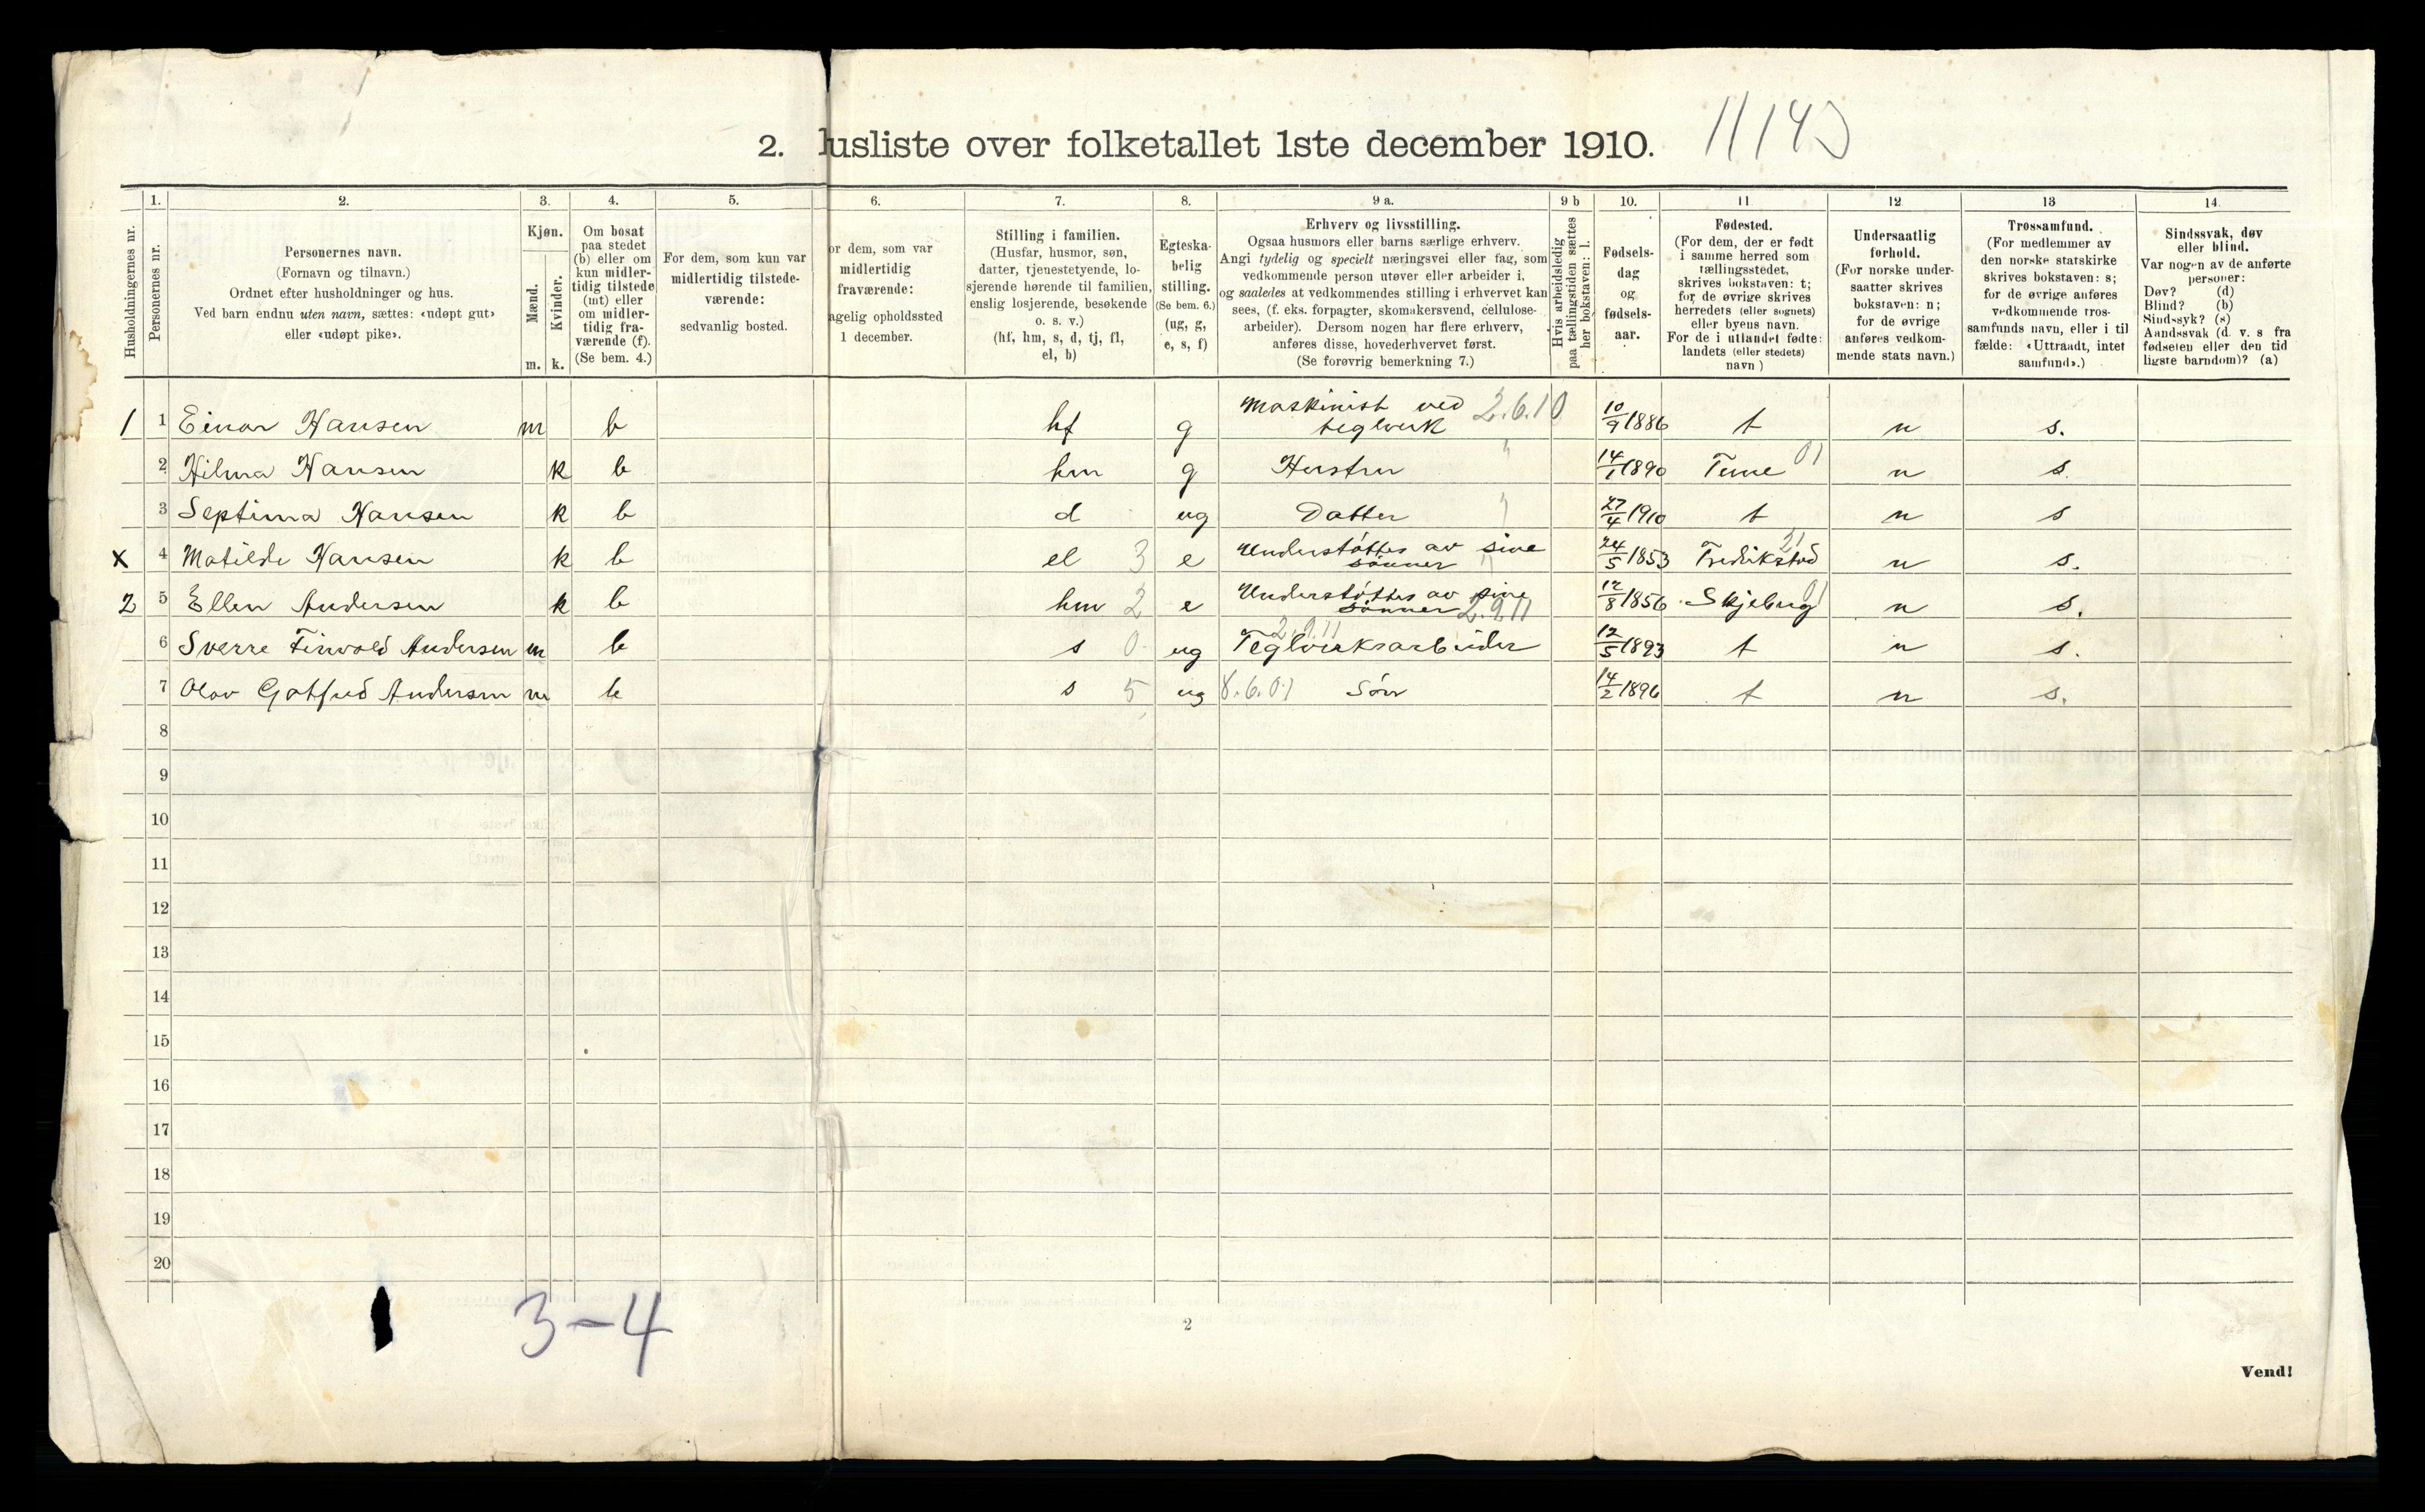 2. usliste over folketallet 1ste december 1910. 11143
Husholdningernes nr.
1.
Personernes nr.
2.
Personernes navn.
(Fornavn og tilnavn.)
Ordnet efter husholdninger og hus.
Ved barn endnu uten navn, sættes: «udøpt gut»
eller «udøpt pike».
3.
Kjøn.
Mænd.
Kvinder.
m. k.
4.
Om bosat
paa stedet
(b) eller om
kun midler-
tidig tilstede
(mt) eller
om midler-
tidig fra-
værende (f).
(Se bem. 4.)
5.
For dem, som kun var
midlertidig tilstede-
værende:
sedvanlig bosted.
6.
or dem, som var
midlertidig
fraværende:
agelig opholdssted
1 december.
7.
Stilling i familien.
(Husfar, husmor, søn,
datter, tjenestetyende, lo-
sjerende hørende til familien,
enslig losjerende, besøkende
o. s. v.)
(hf, hm, s, d, tj, fl,
el, b)
8.
Egteska-
belig
stilling.
(Se bem. 6.)
(ug, g,
e, s, f)
9 a.
Erhverv og livsstilling.
Ogsaa husmors eller barns særlige erhverv.
Angi tydelig og specielt næringsvei eller fag, som
vedkommende person utøver eller arbeider i,
og saaledes at vedkommendes stilling i erhvervet kan
sees, (f. eks. forpagter, skomakersvend, cellulose-
arbeider). Dersom nogen har flere erhverv,
anføres disse, hovederhvervet først.
(Se forøvrig bemerkning 7.)
9 b
Hvis arbeidsledig
paa tællingstiden sættes
her bokstaven: l.
10.
Fødsels-
dag
og
fødsels-
aar.
11
Fødested.
(For dem, der er født
i samme herred som
tællingsstedet,
skrives bokstaven: t;
for de øvrige skrives
herredets (eller sognets)
eller byens navn.
For de i utlandet fødte:
landets (eller stedets)
navn )
12
Undersaatlig
forhold.
(For norske under-
saatter skrives
bokstaven: n;
for de øvrige
anføres vedkom-
mende stats navn.)
13
Trossamfund.
(For medlemmer av
den norske statskirke
skrives bokstaven: s;
for de øvrige anføres
vedkommende tros-
samfunds navn, eller i til
fælde: «Uttraadt, intet
samfund».)
14
Sindssvak, døv
eller blind.
Var nogen av de anførte
personer:
Døv? (d)
Blind? (b)
Sindssyk? (s)
Aandssvak (d. v. s fra
fødselen eller den tid
ligste barndom)? (a)
1 1 Einar Hansen m b hf g Maskinist ved teglverk 2.6.10 10/9 1886 t n s.
2 Hilma Hansen k b hm g Hustru " 14/1 1890 Tune 01 n s
3 Septima Hansen k b d ug Datter " 27/4 1910 t n s
x 4 Matilde Hansen k b el 3 e Understøttes av sine sønner " 24/5 1853 Fredrikstad 21 n s.
2 5 Ellen Andersen k b hm 2 e Understøttes av sine sønner 2.9.11 12/8 1856 Skjeberg 01 n s.
6 Sverre Finvald Andersen m b s 0 ug Teglverksarbeider 2.9.11 12/5 1893 t n s.
7 Olav Gotfred Andersen m b s 5 ug 8.6.01 Søn 14/2 1896 t n s.
8
9
10
11
12
13
14
15
16
17
18
19
20
3-4
2
Vend!